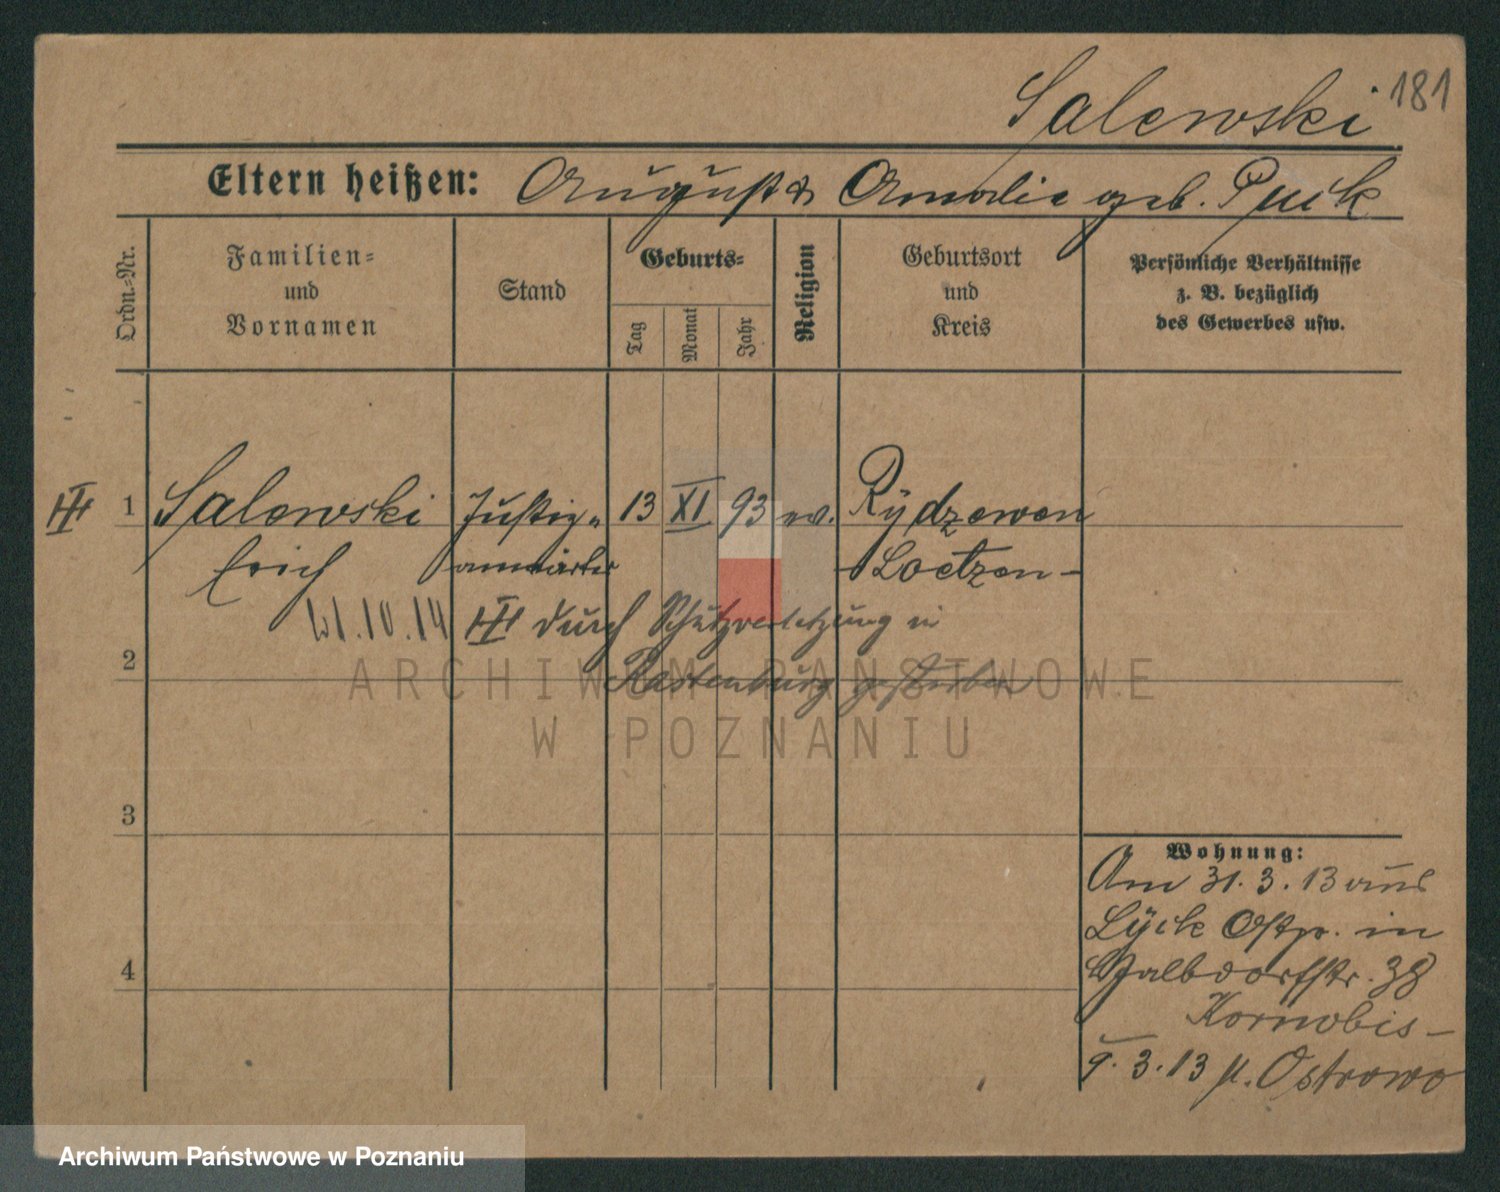 Salewski 181
Eltern heißen: August & Amalie geb. Puck
Ordn.-Nr.
Familien-
und
Vornamen
Stand
Geburts-
Tag
Monat
Jahr
Religion
Geburtsort
und
Kreis
Persönliche Verhältnisse
z. B. bezüglich
des Gewerbes usw.
1 Salewski Justiz- 13 XI 93 ev. Rydzewen
Erich anwärter Loetzen
10.14 durch Schußverletzung in
2 Rastenburg gestorben
3
4
Wohnung:
Am 31.3.13 aus
Lyck Ostpr. in
Kornobis
9.3.13 n. Ostrowo
ARCHIWUM PAŃSTWOWE
W POZNANIU
Archiwum Państwowe w Poznaniu